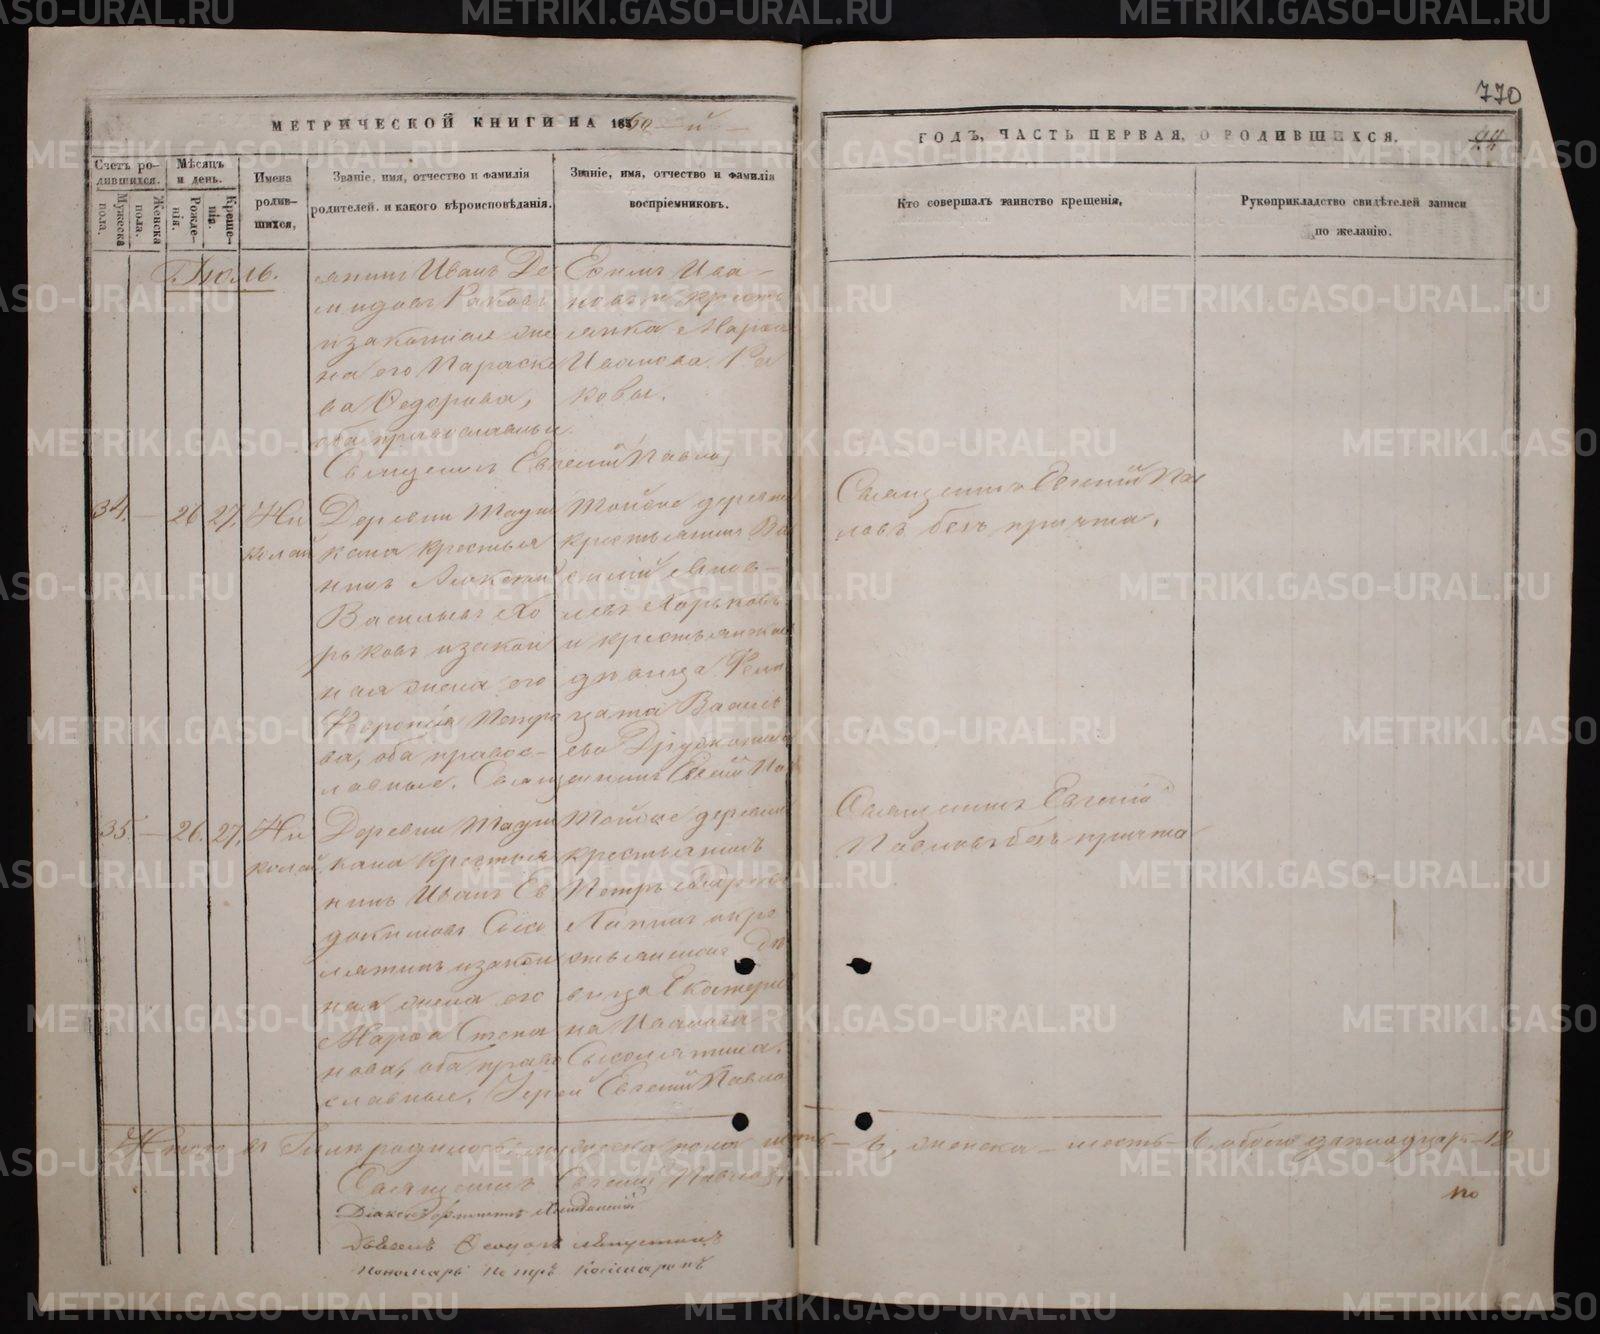 770
МЕТРИЧЕСКОЙ КНИГИ НА 1860 й
ГОДЪ, ЧАСТЬ ПЕРВАЯ, О РОДИВШИХСЯ.
Счетъ родившихся.
Мужеска пола.
Женска пола.
Мѣсяцъ и день.
Рожденія.
Крещенія.
Имена родившихся,
Званіе, имя, отчество и фамилія
родителей, и какого вѣроисповѣданія.
Званіе, имя, отчество и фамилія
воспріемниковъ.
Кто совершалъ таинство крещенія,
Рукоприкладство свидѣтелей записи
по желанію.
Іюль.
янинъ Иванъ Де
мидовъ Раковъ
и законная же
на его Параске
ва Ѳедорова,
оба православные.
Священникъ Евгеній Павловъ
Ефимъ Ива-
новъ и кресть
янка Марѳа
Иванова Ра
ковы.
34. — 26 27.
Ни
колай
Деревни
кана крестья
нинъ Алексей
Васильевъ Хо
рьковъ и закон
ная жена его
Февронія Петро
ва, оба правос-
лавные. Священникъ Евгеній Пав
Тойже деревни
крестьянинъ Ва
силій
левъ Хорьковъ
и крестьянская
дѣвица Фели
цата Василь
ева
Священникъ Евгеній Пав
ловъ безъ причта.
35. — 26. 27.
Ни
колай
Деревни
кана крестья
нинъ Иванъ Ев
докимовъ Сысо
лятинъ и закон
ная жена его
Марѳа Степа
нова, оба право
славные. Іерей Евгеній Павло
Тойже деревни
крестьянинъ
Петръ
Лапинъ и кре
стьянская дѣ
вица Екатери
на Иванова
Сысолятина.
Священникъ Евгеній
Павловъ безъ причта
Итого въ Іюлѣ родилось мужеска пола шесть — 6, женска — шесть — 6, обоего двенадцать — 12
Священникъ Евгеній Павловъ.
по
Діаконъ
Дьячекъ Ѳеодоръ
Пономарь Петръ
METRIKI.GASO-URAL.RU